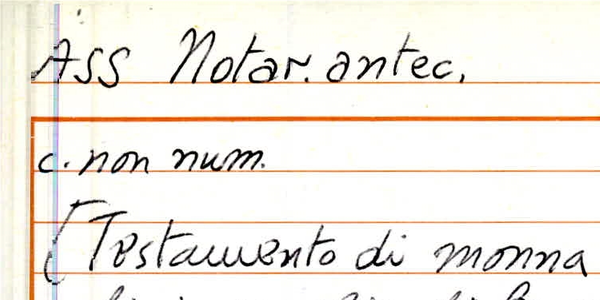 ASS Notar. antec.
c. non num.
[Testamento di monna